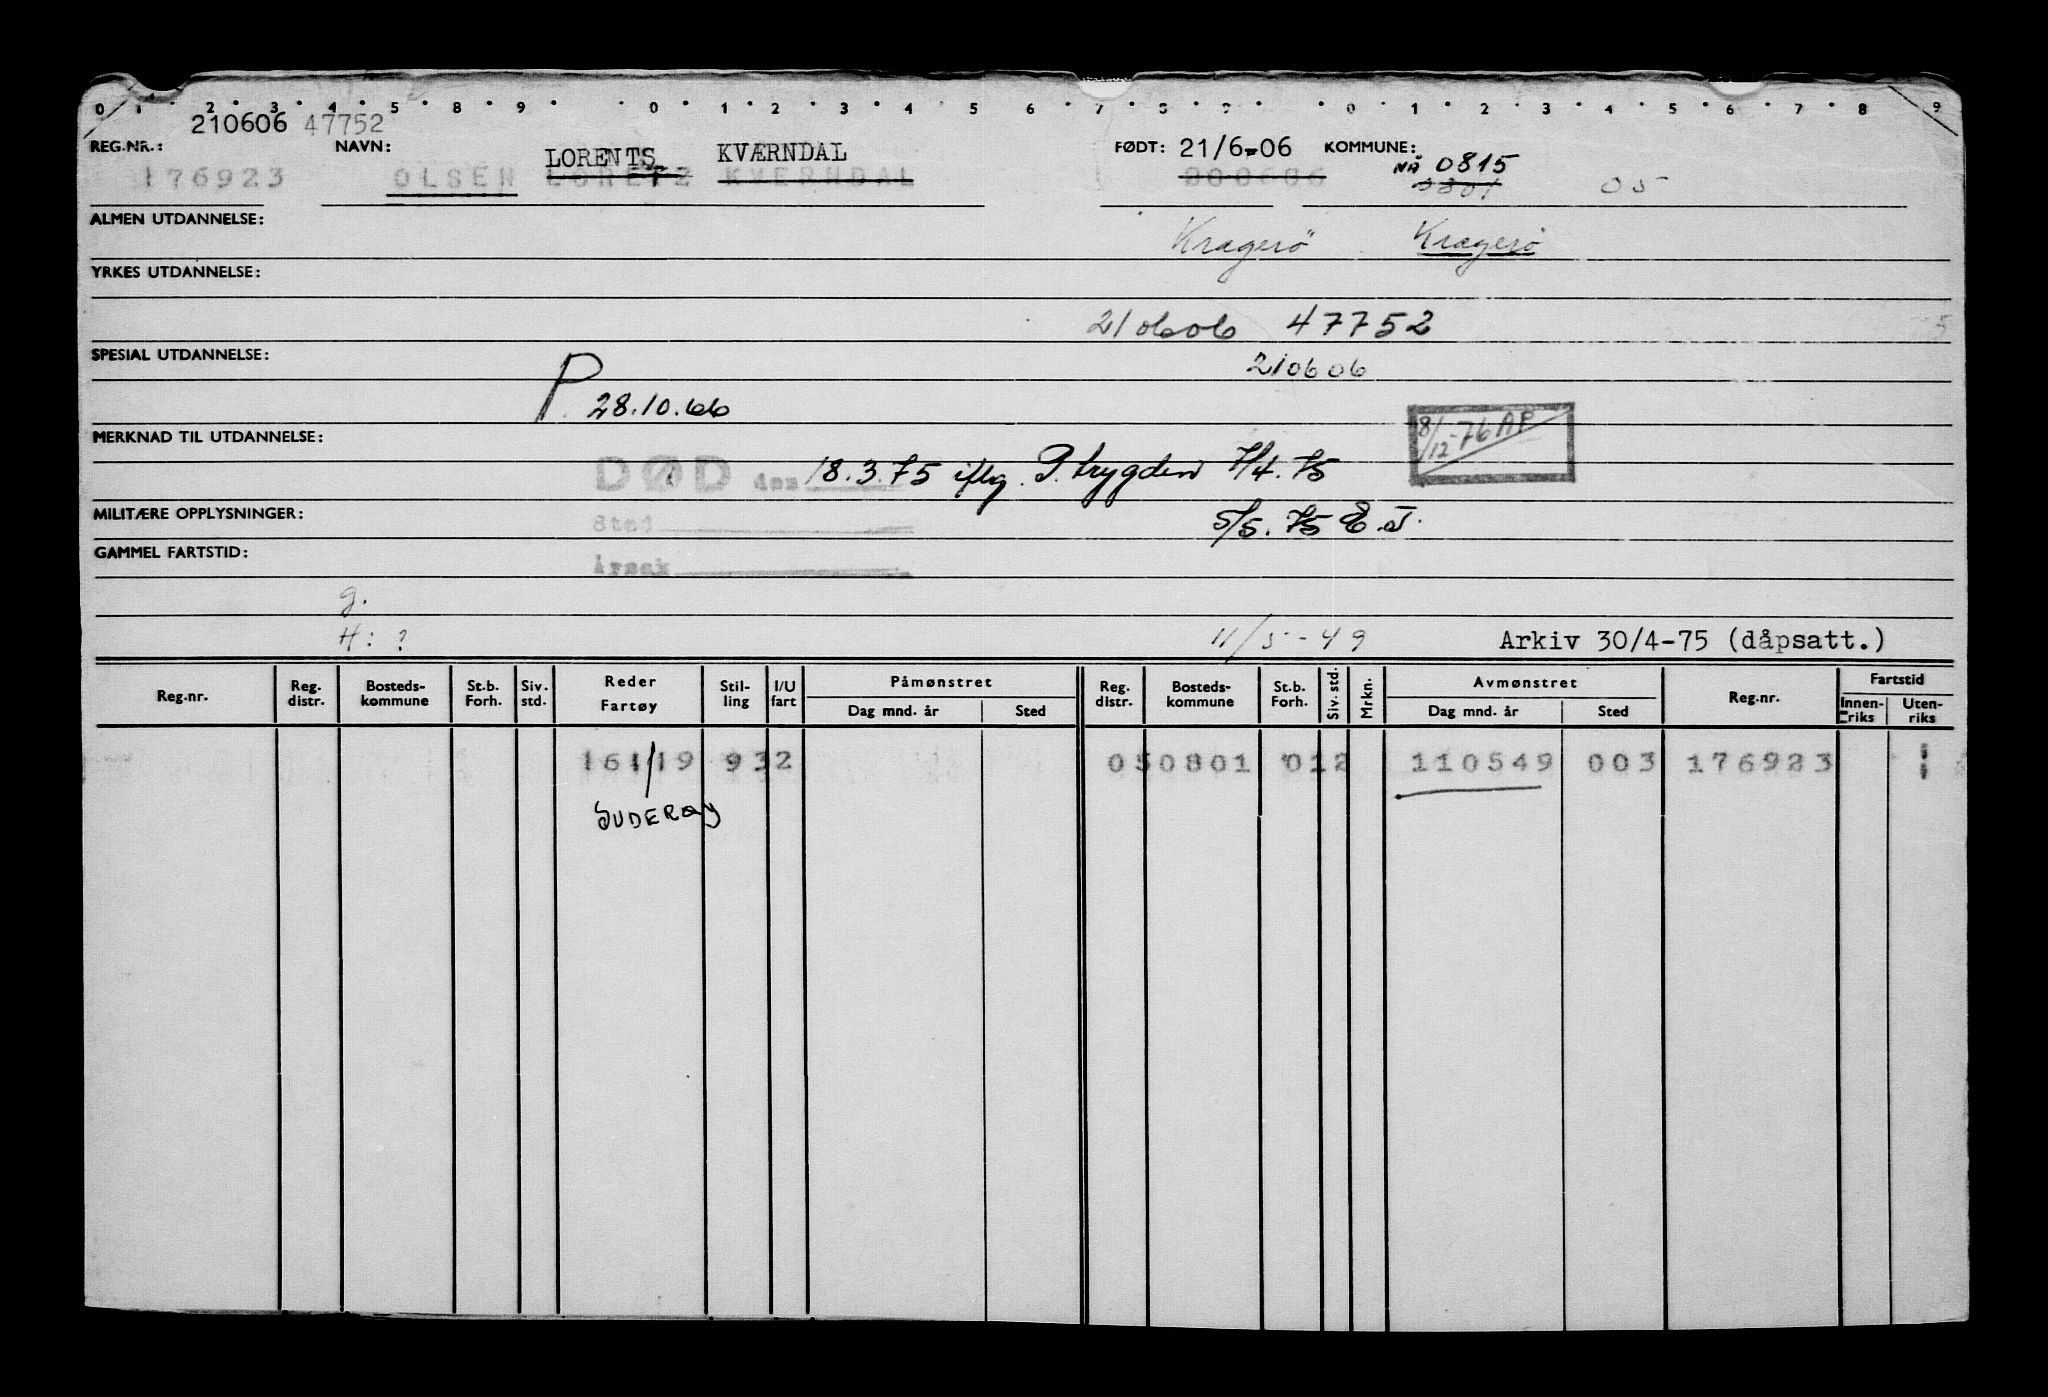 0 1 2 3 4 5 8 9 0 1 2 3 4 5 6 7 8 9 0 1 2 3 4 5 6 7 8 9
210606 47752
REG.NR.: NAVN: LORENTS KVÆRNDAL FØDT: 21/6-06 KOMMUNE: NÅ 0815
176923 OLSEN LORETZ KVERNDAL 000606 0801 05
ALMEN UTDANNELSE: Kragerö Kragerø
YRKES UTDANNELSE:
210606 47752
SPESIAL UTDANNELSE: 210606
P 28.10.66
8/12-76 AP
MERKNAD TIL UTDANNELSE:
DØD den 18.3.75 iflg. P.trygden 7/4.75
MILITÆRE OPPLYSNINGER: Sted 5/5.75 E.J.
GAMMEL FARTSTID: Årsak
g.
H: ? 11/5-49 Arkiv 30/4-75 (dåpsatt.)
Reg.nr. Reg. distr. Bosteds-kommune St.b. Forh. Siv. std. Reder Fartøy Stil-ling I/U fart Påmønstret Dag mnd. år Sted Reg. distr. Bosteds-kommune St.b. Forh. Siv. std. Mrkn. Avmønstret Dag mnd. år Sted Reg.nr. Fartstid Innen-riks Uten-riks
161/19 932 050801 012 110549 003 176923
SUDERØY